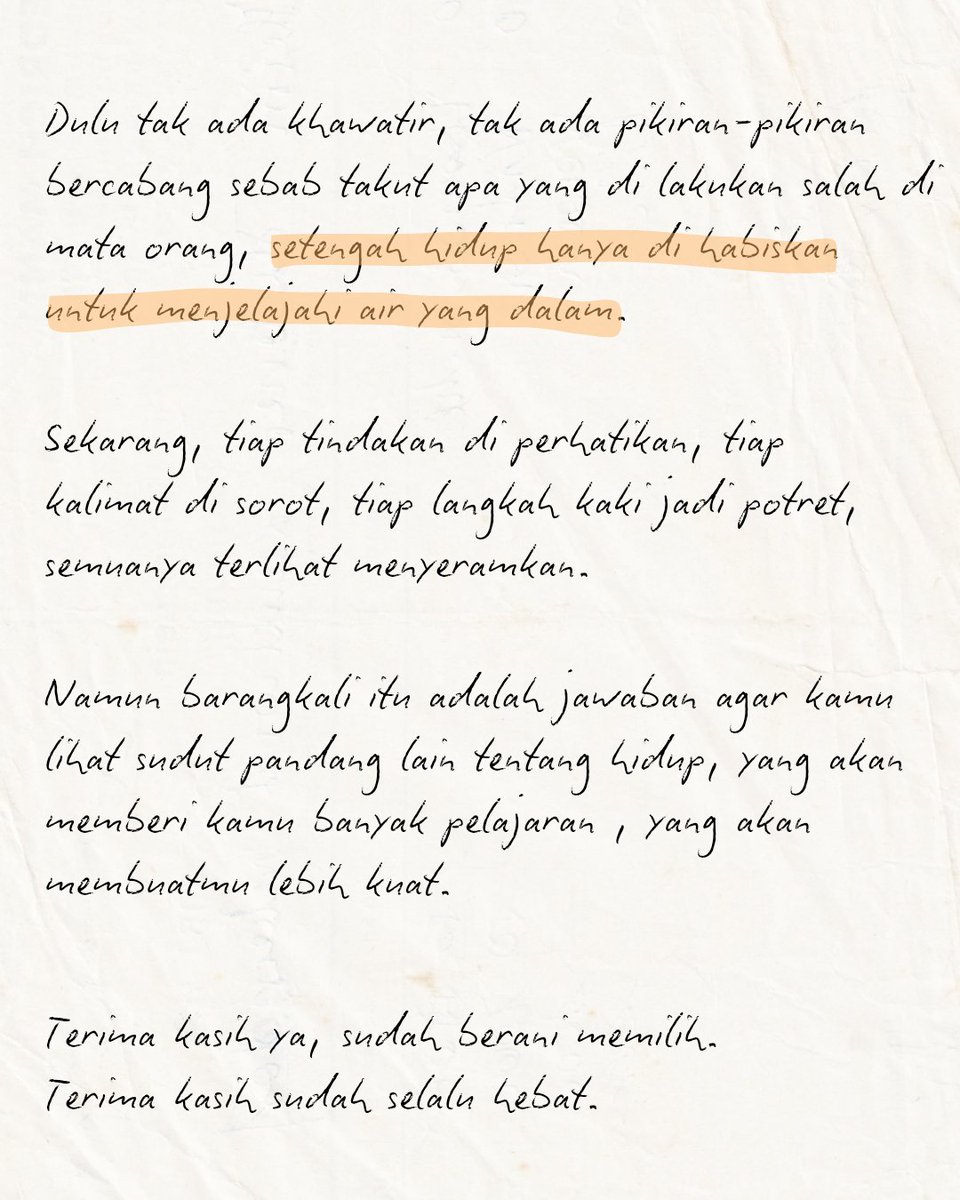 Dulu tak ada khawatir, tak ada pikiran-pikiran
bercabang sebab takut apa yang di lakukan salah di
mata orang, setengah hidup hanya di habiskan
untuk menjelajahi air yang dalam.
Sekarang, tiap tindakan di perhatikan, tiap
kalimat di sorot, tiap langkah kaki jadi potret,
semuanya terlihat menyeramkan.
Namun barangkali itu adalah jawaban agar kamu
lihat sudut pandang lain tentang hidup, yang akan
memberi kamu banyak pelajaran , yang akan
membuatmu lebih kuat.
Terima kasih ya, sudah berani memilih.
Terima kasih sudah selalu hebat.